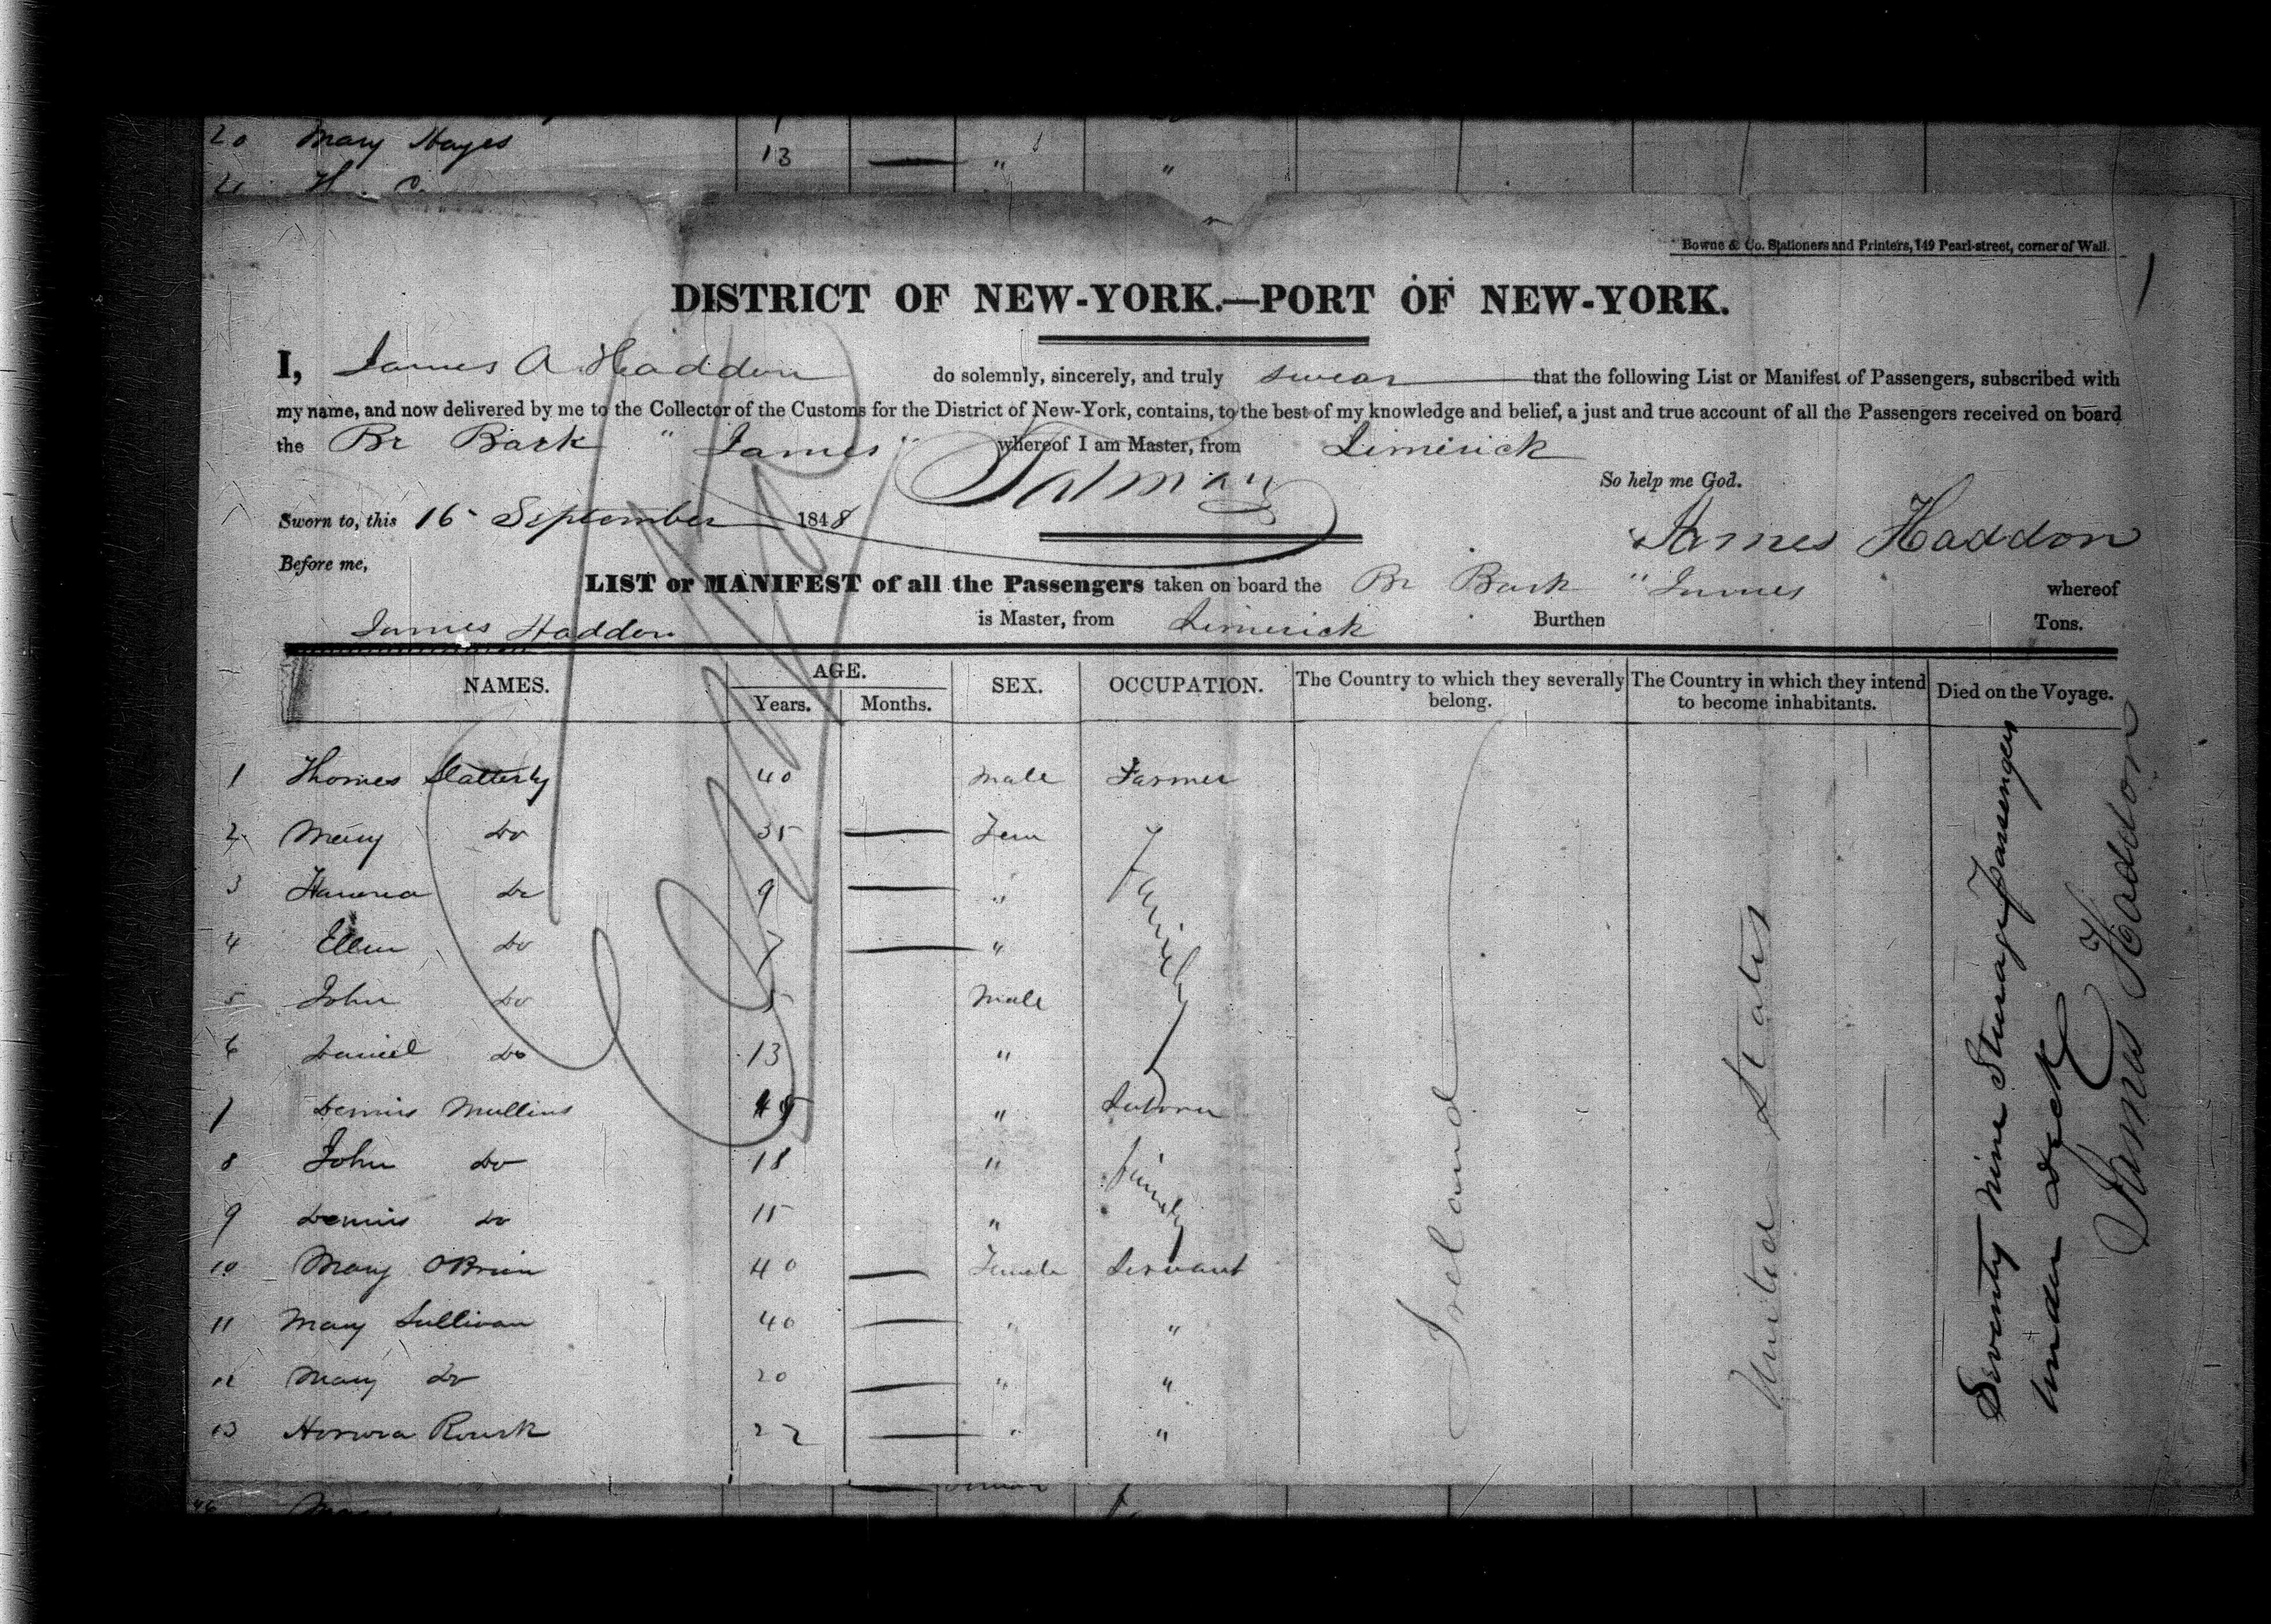 20 Mary Hayes 13 — " "
Bowne & Co. Stationers and Printers, 149 Pearl-street, corner of Wall.
DISTRICT OF NEW-YORK.—PORT OF NEW-YORK.
I, James A Haddon do solemnly, sincerely, and truly swear that the following List or Manifest of Passengers, subscribed with
my name, and now delivered by me to the Collector of the Customs for the District of New-York, contains, to the best of my knowledge and belief, a just and true account of all the Passengers received on board
the Br Bark " James " whereof I am Master, from Limerick
So help me God.
Sworn to, this 16 September 1848
James Haddon
Before me,
LIST or MANIFEST of all the Passengers taken on board the Br Bark " James whereof
James Haddon is Master, from Limerick Burthen Tons.
NAMES. AGE. Years. Months. SEX. OCCUPATION. The Country to which they severally belong. The Country in which they intend to become inhabitants. Died on the Voyage.
1 Thomes Slatterly 40 Male Farmer
2 Mary Do 35 — Fem
3 Hanorea Do 9 — "
4 Ellen Do 7 — "
5 John Do 5 Male
6 Daniel Do 13 "
Family
7 Dennis Mullins 45 "
8 John Do 18 "
9 Dennis Do 15 "
family
10 Mary OBrien 40 — Female Servant
11 Mary Sullivan 40 — " "
12 Mary Do 20 — " "
13 Honora Rourk 22 — " "
Ireland
United States
Seventy Nine Steerage passengers
under deck
James Haddon